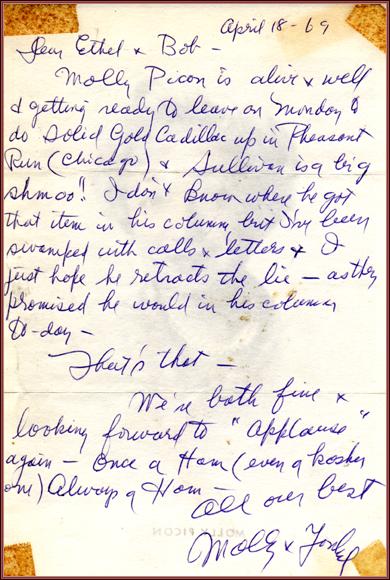 April 18-69
Dear Ethel & Bob -
Molly Picon is alive & well
& getting ready to leave on Monday to
do Solid Gold Cadillac up in Pheasant
Run (Chicago) & Sullivan is a big
shmoo!! I don't know where he got
that item in his column but I've been
swamped with calls & letters & I
just hope he retracts the lie - as they
promised he would in his column
to-day -
That's that -
We're both fine &
looking forward to "applause"
again - Once a Ham (even a kosher
one) Always a Ham -
All our best
Molly & Yonkel
MOLLY PICON